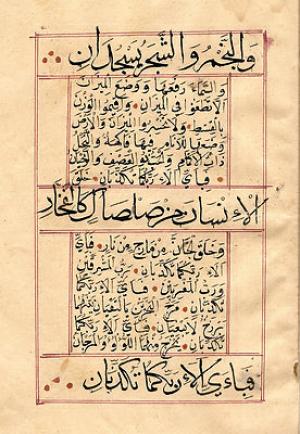 وَالنَّجْمُ وَالشَّجَرُ يَسْجُدَانِ
والسماء رفعها ووضع الميزان
الا تطغوا في الميزان واقيموا الوزن
بالقسط ولا تخسروا الميزان والارض
وضعها للانام فيها فاكهة والنخل
ذات الاكمام والحب ذو العصف والريحان
فباي الاء ربكما تكذبان خلق
الانسان من صلصال كالفخار
وخلق الجان من مارج من نار فباي
الاء ربكما تكذبان رب المشرقين
ورب المغربين فباي الاء ربكما
تكذبان مرج البحرين يلتقيان بينهما
برزخ لا يبغيان فباي الاء ربكما
تكذبان يخرج منهما اللؤلؤ والمرجان
فباي الاء ربكما تكذبان